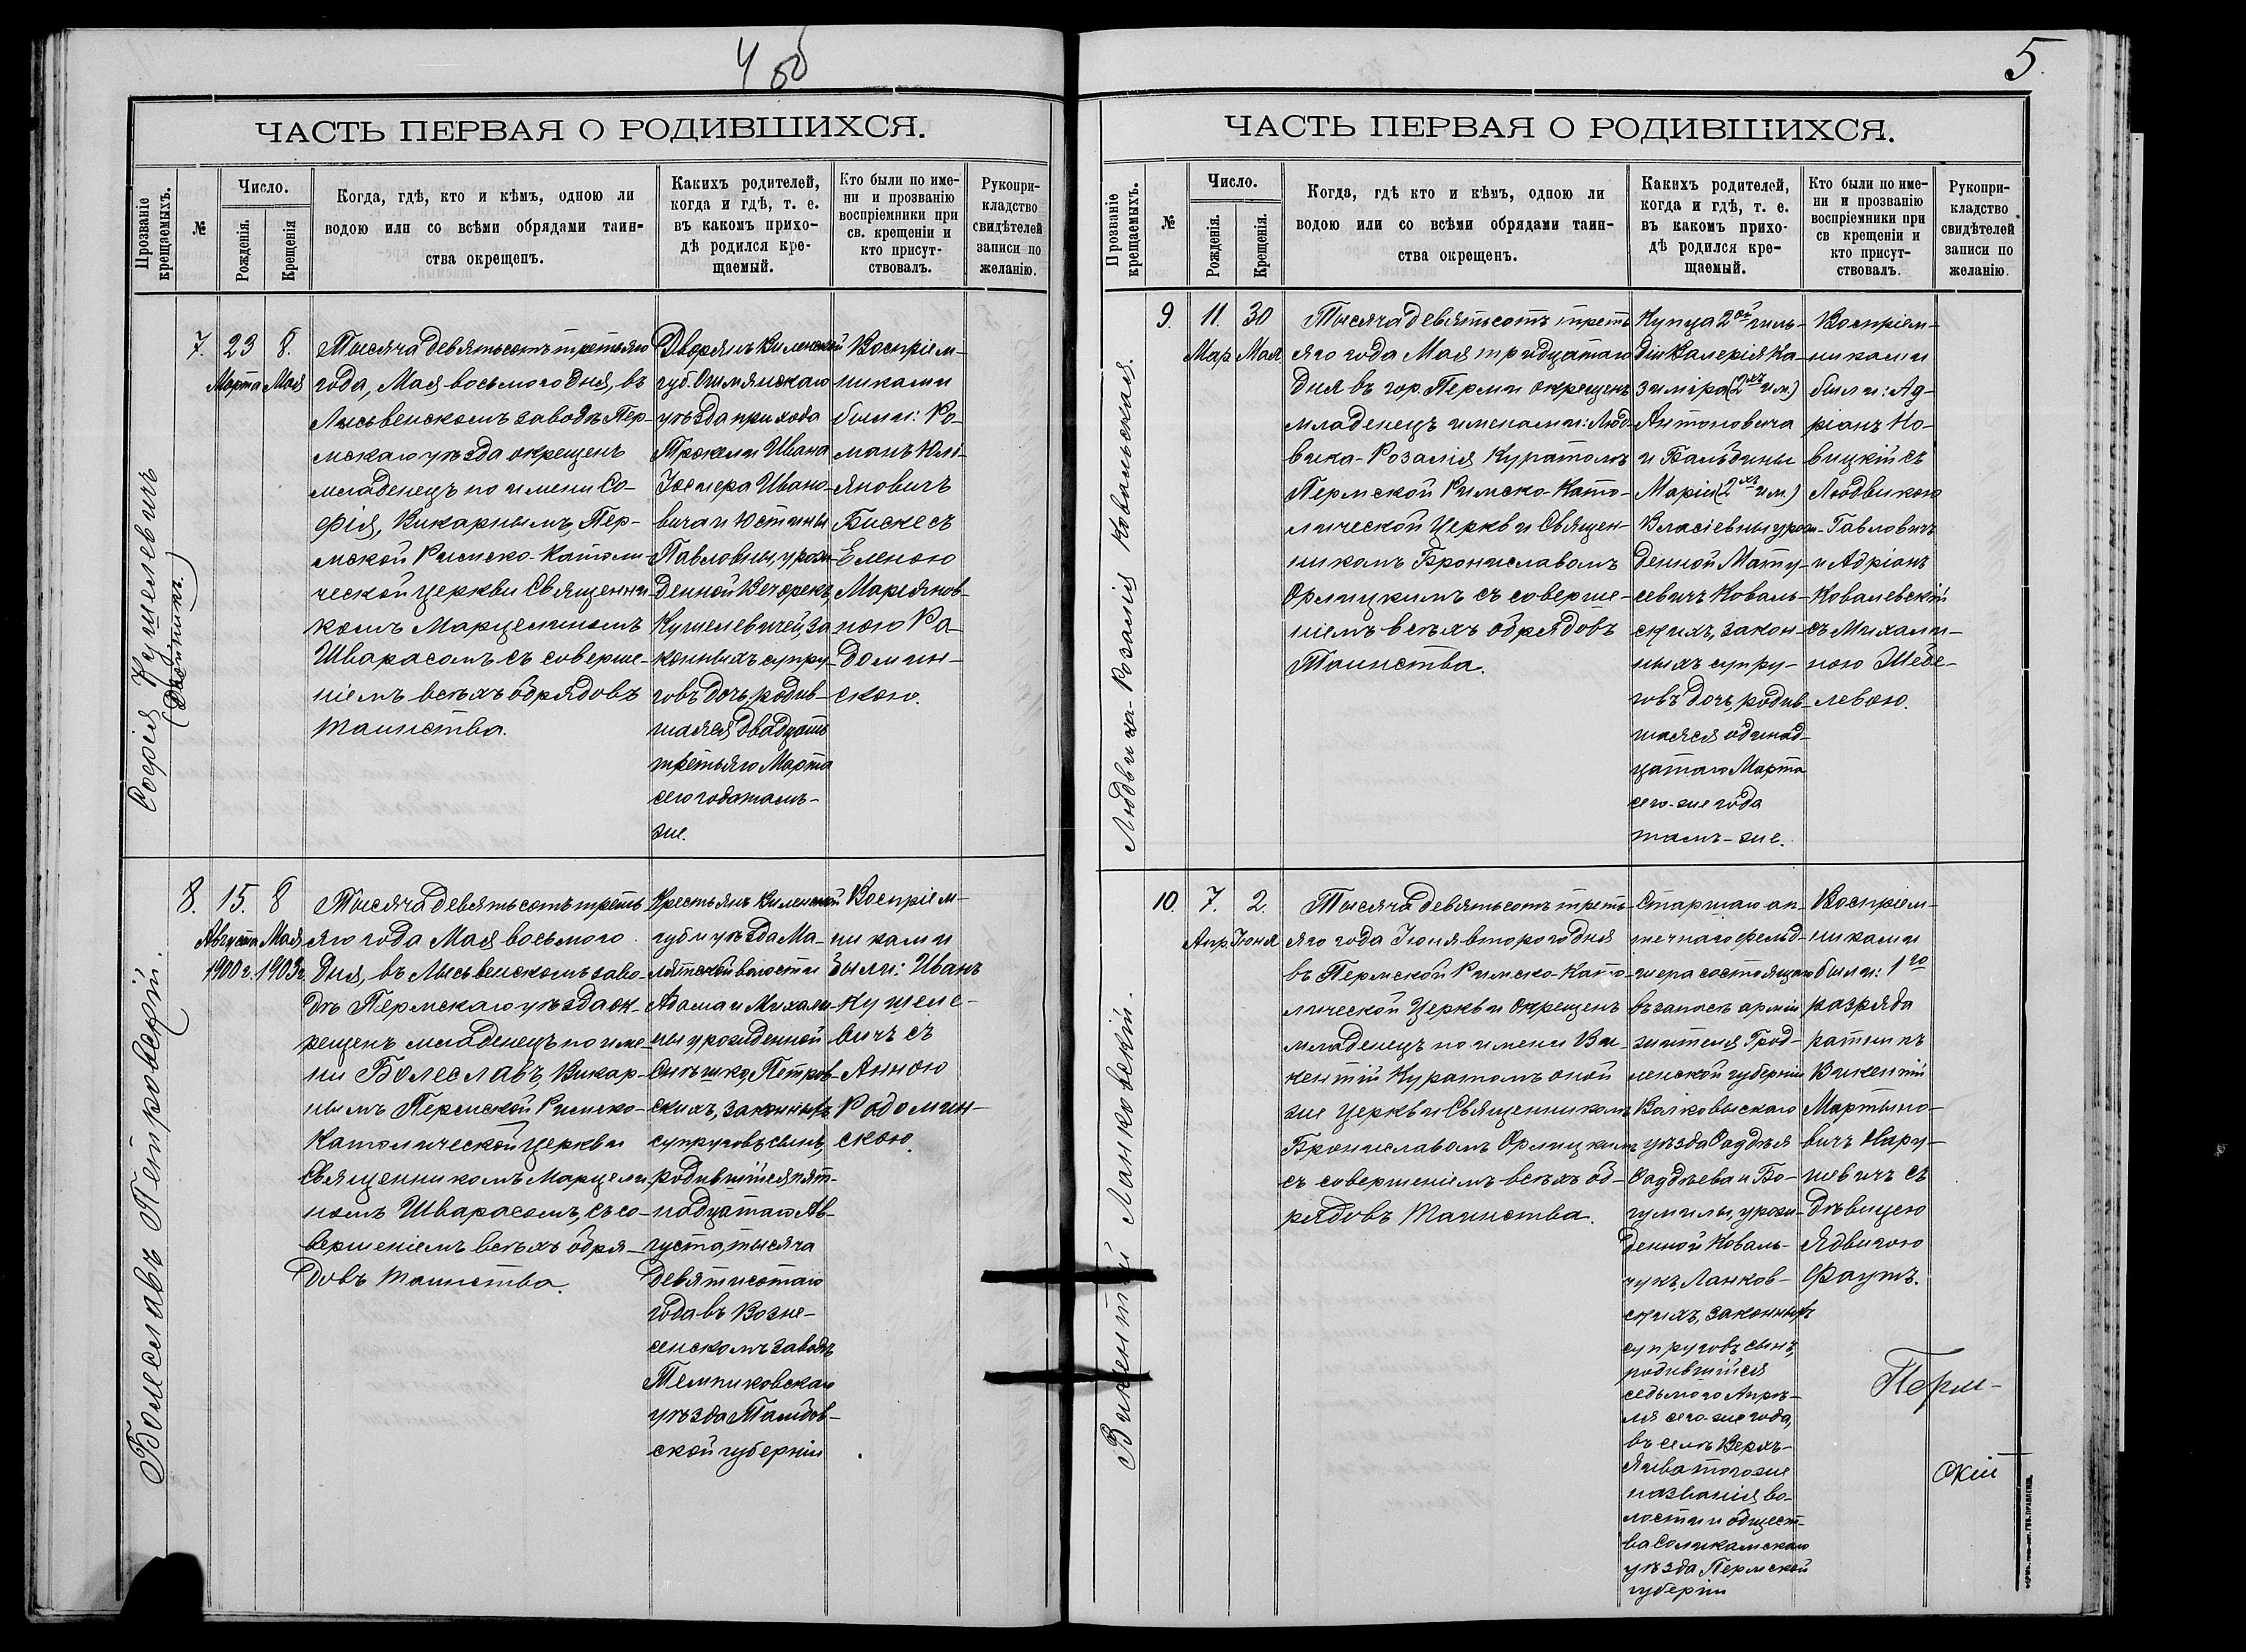 4 об
ЧАСТЬ ПЕРВАЯ О РОДИВШИХСЯ.
Прозваніе крещаемыхъ.
№
Число.
Рожденія.
Крещенія
Когда, гдѣ, кто и кѣмъ, одною ли
водою или со всѣми обрядами таин-
ства окрещенъ.
Какихъ родителей,
когда и гдѣ, т. е.
въ какомъ прихо-
дѣ родился кре-
щаемый.
Кто были по име-
ни и прозванію
воспріемники при
св. крещеніи и
кто присут-
ствовалъ.
Рукопри-
кладство
свидѣтелей
записи по
желанію.
Софія Кушелевичъ
7.
23
Марта
8.
Мая
Тысяча девятьсотъ третьяго
года, Мая восьмого дня, въ
Лысьвенскомъ заводѣ Пер-
мскаго уѣзда окрещенъ
младенецъ по имени Со-
фія, Викарнымъ, Пер-
мской Римско-Католи-
ческой церкви Священни-
комъ Марцелиномъ
Шварасомъ съ соверше-
ніемъ всѣхъ обрядовъ
таинства.
Дворянъ Виленской
губ. Ошмянскаго
уѣзда прихода
Трокели Ивана
Ивано-
вича и Юстины
Павловны, урож-
денной Вечорекъ,
Кушелевичей, за-
конныхъ супру-
говъ дочь, родив-
шаяся двадцать
третьяго Марта
сего года тамъ-
же.
Воспріем-
никами
были: Ро-
манъ Юлі-
яновичъ
Биске съ
Еленою
Маріянов-
ною Ра-
домин-
скою.
Болеславъ Петровскій.
8.
15.
Августа
1900 г.
8
Мая
1903 г.
Тысяча девятьсотъ треть-
яго года Мая восьмого
дня, въ Лысьвенскомъ заво-
дѣ Пермскаго уѣзда ок-
рещенъ младенецъ по име-
ни Болеславъ, Викар-
нымъ Пермской Римско-
Католической церкви
Священникомъ Марцели-
номъ Шварасомъ, съ со-
вершеніемъ всѣхъ обря-
довъ таинства.
Крестьянъ Виленской
губ и уѣзда Ма-
лятской волости
Адама и Михали-
ны урожденной
Петров-
скихъ, законныхъ
супруговъ сынъ,
родившійся пят-
надцатаго Ав-
густа, тысяча
девятисотаго
года въ Возне-
сенскомъ заводѣ
Темниковскаго
уѣзда Тамбов-
ской губерніи
Воспріем-
никами
были: Иванъ
Кушеле-
вичъ съ
Анною
Радомин-
скою.
5.
ЧАСТЬ ПЕРВАЯ О РОДИВШИХСЯ.
Прозваніе крещаемыхъ.
№
Число.
Рожденія.
Крещенія.
Когда, гдѣ кто и кѣмъ, одною ли
водою или со всѣми обрядами таин-
ства окрещенъ.
Какихъ родителей,
когда и гдѣ, т. е.
въ какомъ прихо-
дѣ родился кре-
щаемый.
Кто были по име-
ни и прозванію
воспріемники при
св крещеніи и
кто присут-
ствовалъ.
Рукопри-
кладство
свидѣтелей
записи по
желанію.
Людвика-Розалія Ковальская.
9.
11.
Мар
30
Мая
Тысяча девятьсотъ треть-
яго года Мая тридцатаго
дня въ гор. Перми окрещенъ
младенецъ именами: Люд-
вика-Розалія Куратомъ
Пермской Римско-Като-
лической Церкви Священ-
никомъ Брониславомъ
Орлицкимъ съ соверше-
ніемъ всѣхъ обрядовъ
Таинства.
Купца 2ой гиль-
діи Валерія Ка-
зиміра (2хъ им.)
Антоновича
и Бальбины
Маріи (2хъ им.)
Власіевны урож-
денной Мату-
севичъ Коваль-
скихъ, закон-
ныхъ супру-
говъ дочь, родив-
шаяся одинад-
цатаго Марта
сего-же года
тамъ-же.
Воспріем-
никами
были: Ад-
ріанъ Но-
вицкій съ
Людвикою
Гавловичъ
и Адріанъ
Ковалевскій
съ Михали-
ною Шебе-
левою.
Викентій Ланковскій.
10.
7.
Апр.
2.
Іюня
Тысяча девятьсотъ треть-
яго года Іюня второго дня
въ Пермской Римско-Като-
лической Церкви окрещенъ
младенецъ по имени Ви-
кентій Куратомъ оной
же церкви Священникомъ
Брониславомъ Орлицкимъ
съ совершеніемъ всѣхъ об-
рядовъ Таинства.
Старшаго ап-
течнаго фельд-
шера состоящаго
въ запасѣ арміи
жителя Грод-
ненской губерніи
Волковыскаго
уѣзда Фаддѣя
Фаддѣева и Бо-
гумилы, урож-
денной Коваль-
чукъ, Ланков-
скихъ, законныхъ
супруговъ сынъ,
родившійся
седьмого Апрѣ-
ля сего-же года,
въ селѣ Верхъ-
Яйва того же
названія во-
лости и общест-
ва Соликамскаго
уѣзда Пермской
губерніи
Воспріем-
никами
были: 1го
разряда
ратникъ
Викентій
Мартыно-
вичъ Нару-
шевичъ съ
дѣвицею
Ядвигою
Фаутъ.
Перм-
скій